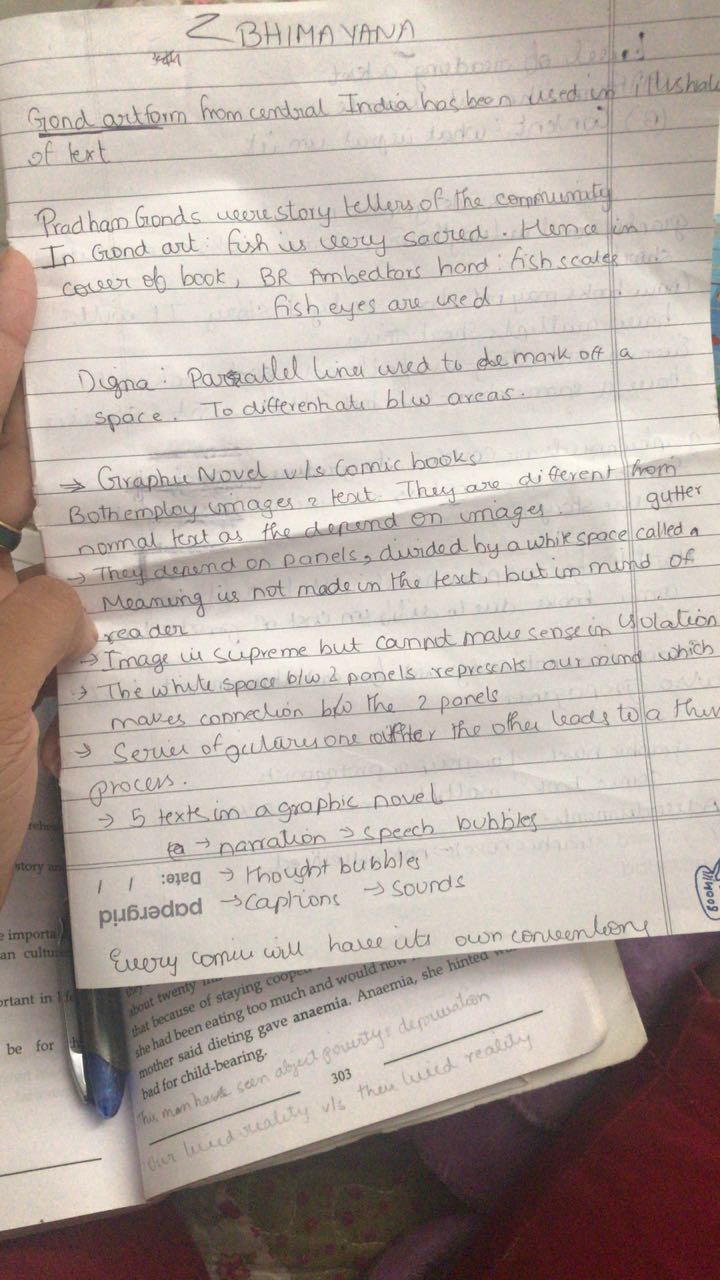 BHIMAYANA
Gond artform from central India has been used in illustrat
of text
Pradhan Gonds were story tellers of the community
In Gond art: fish is very sacred. Hence in
cover of book, BR Ambedkars hand: fish scales
: fish eyes are used
Digna: Parallel lines used to de mark off a
space. To differentiate b/w areas.
→ Graphic Novel v/s Comic books
Both employ images & text. They are different from
normal text as the depend on images
gutter
→ They depend on panels, divided by a white space called a
Meaning is not made in the text, but in mind of
reader
→ Image is supreme but cannot make sense in isolation
→ The white space b/w 2 panels represents our mind which
makes connection b/w the 2 panels
→ Series of one after the other leads to a
process.
→ 5 texts in a graphic novel
→ narration → speech bubbles
→ thought bubbles
→ captions → sounds
Date: / /
papergrid
Every comic will have its own conventions
story an
e importa
an cultur
rtant in
be for
about twenty
that because of staying
she had been eating too much and would now
mother said dieting gave anaemia. Anaemia, she hinted
bad for child-bearing.
303
This man have seen abject poverty & deprivation
Our lived reality v/s their lived reality